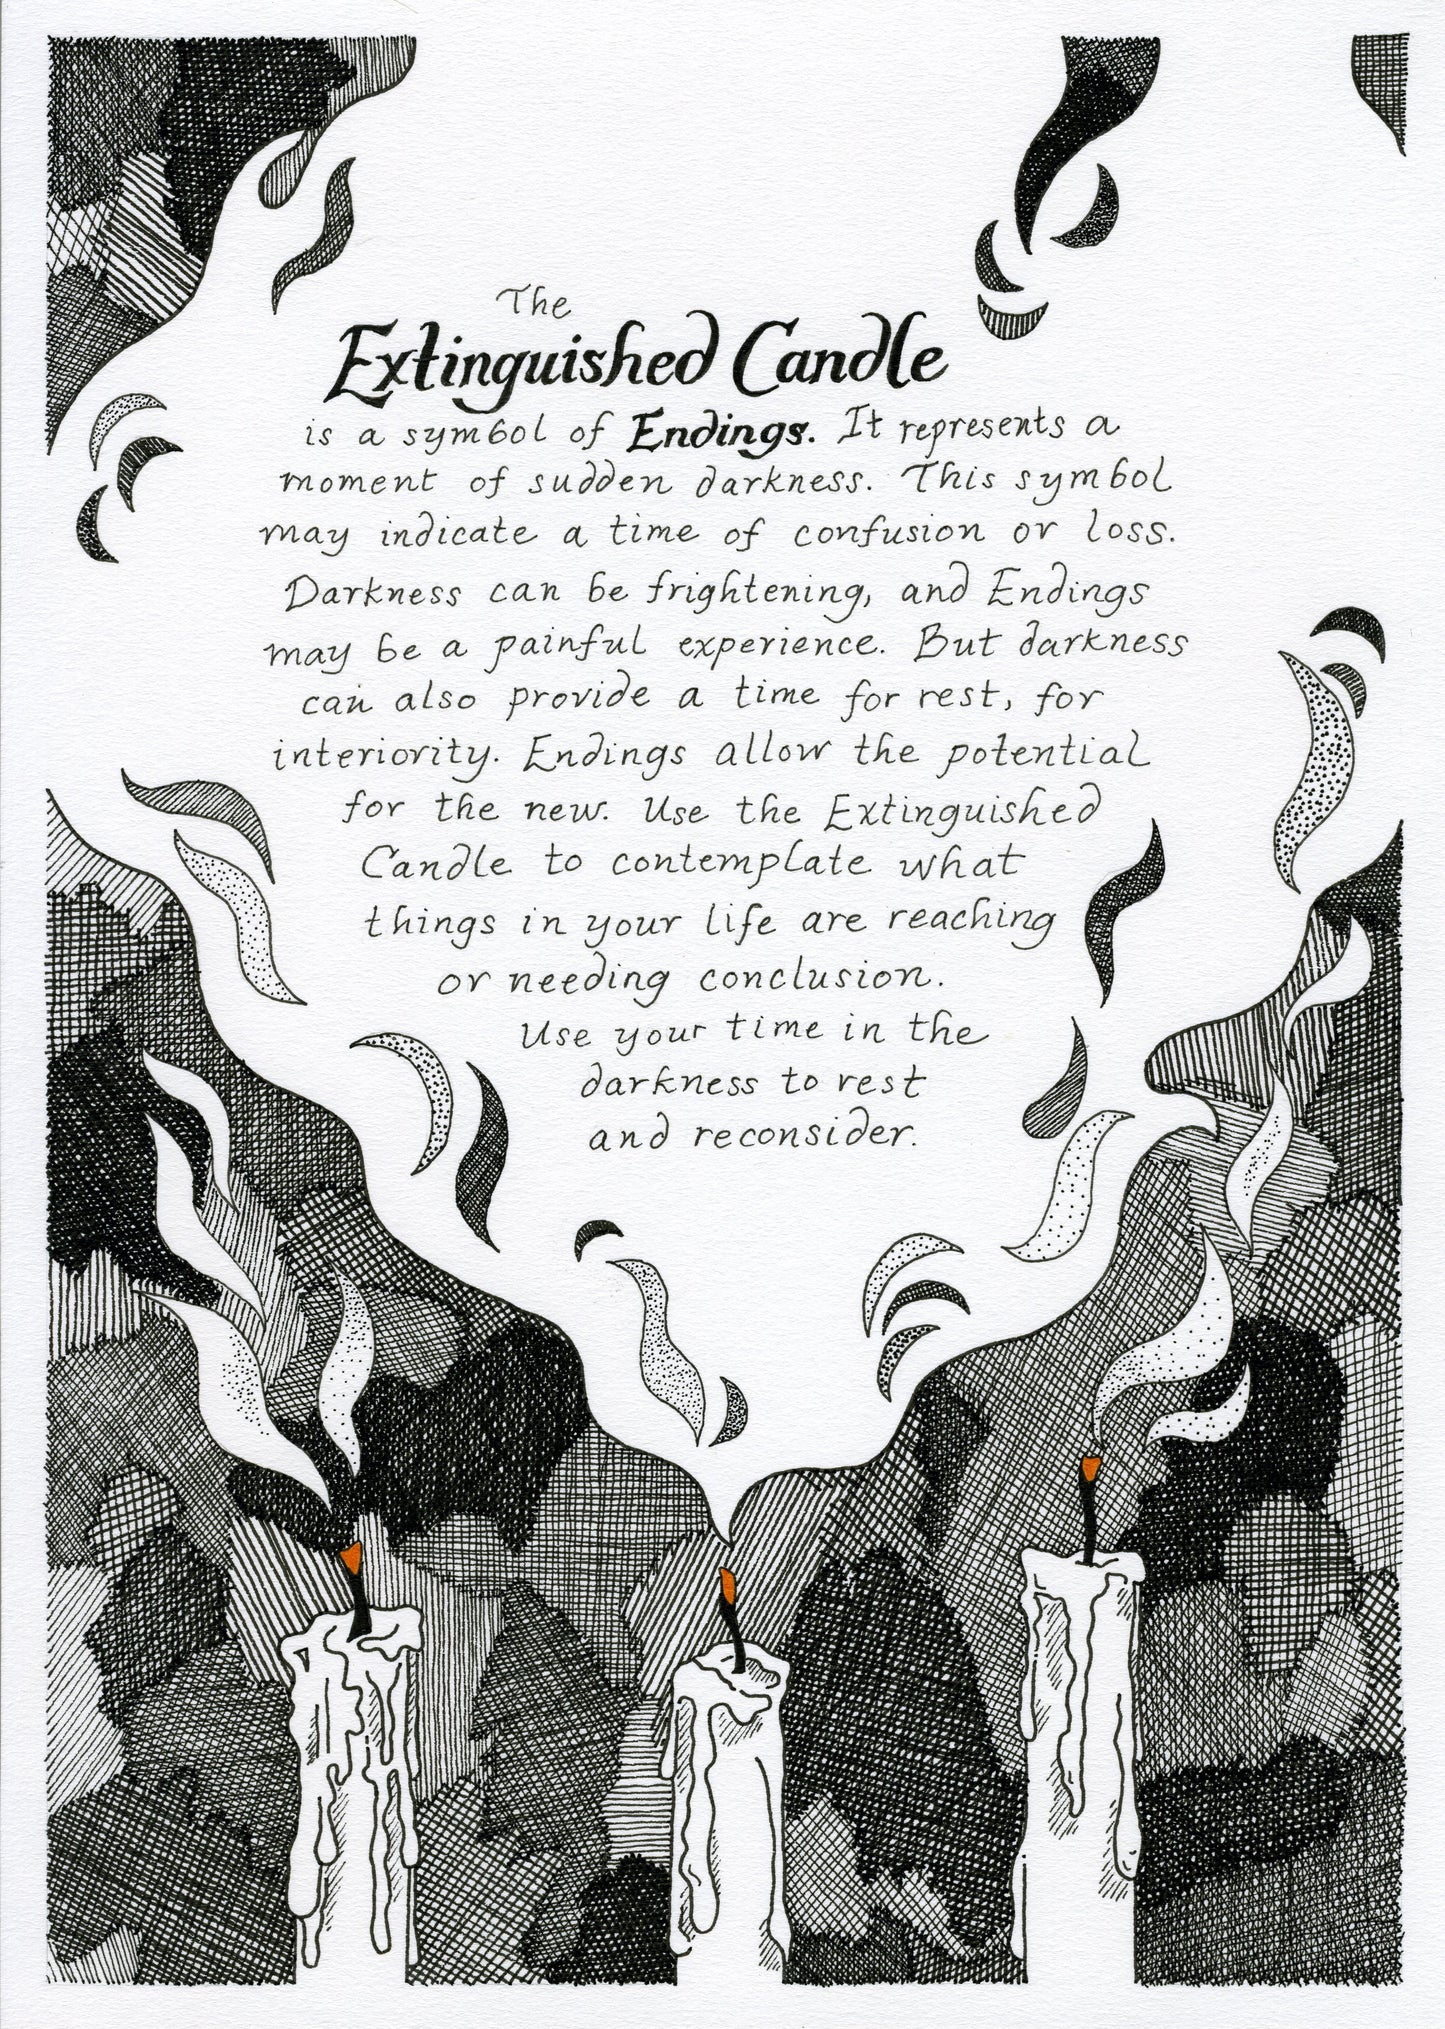 The
Extinguished Candle
is a symbol of Endings. It represents a
moment of sudden darkness. This symbol
may indicate a time of confusion or loss.
Darkness can be frightening, and Endings
may be a painful experience. But darkness
can also provide a time for rest, for
interiority. Endings allow the potential
for the new. Use the Extinguished
Candle to contemplate what
things in your life are reaching
or needing conclusion.
Use your time in the
darkness to rest
and reconsider.